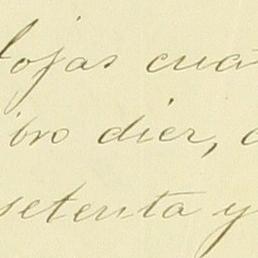 fojas cua
ibro diez,
setenta y